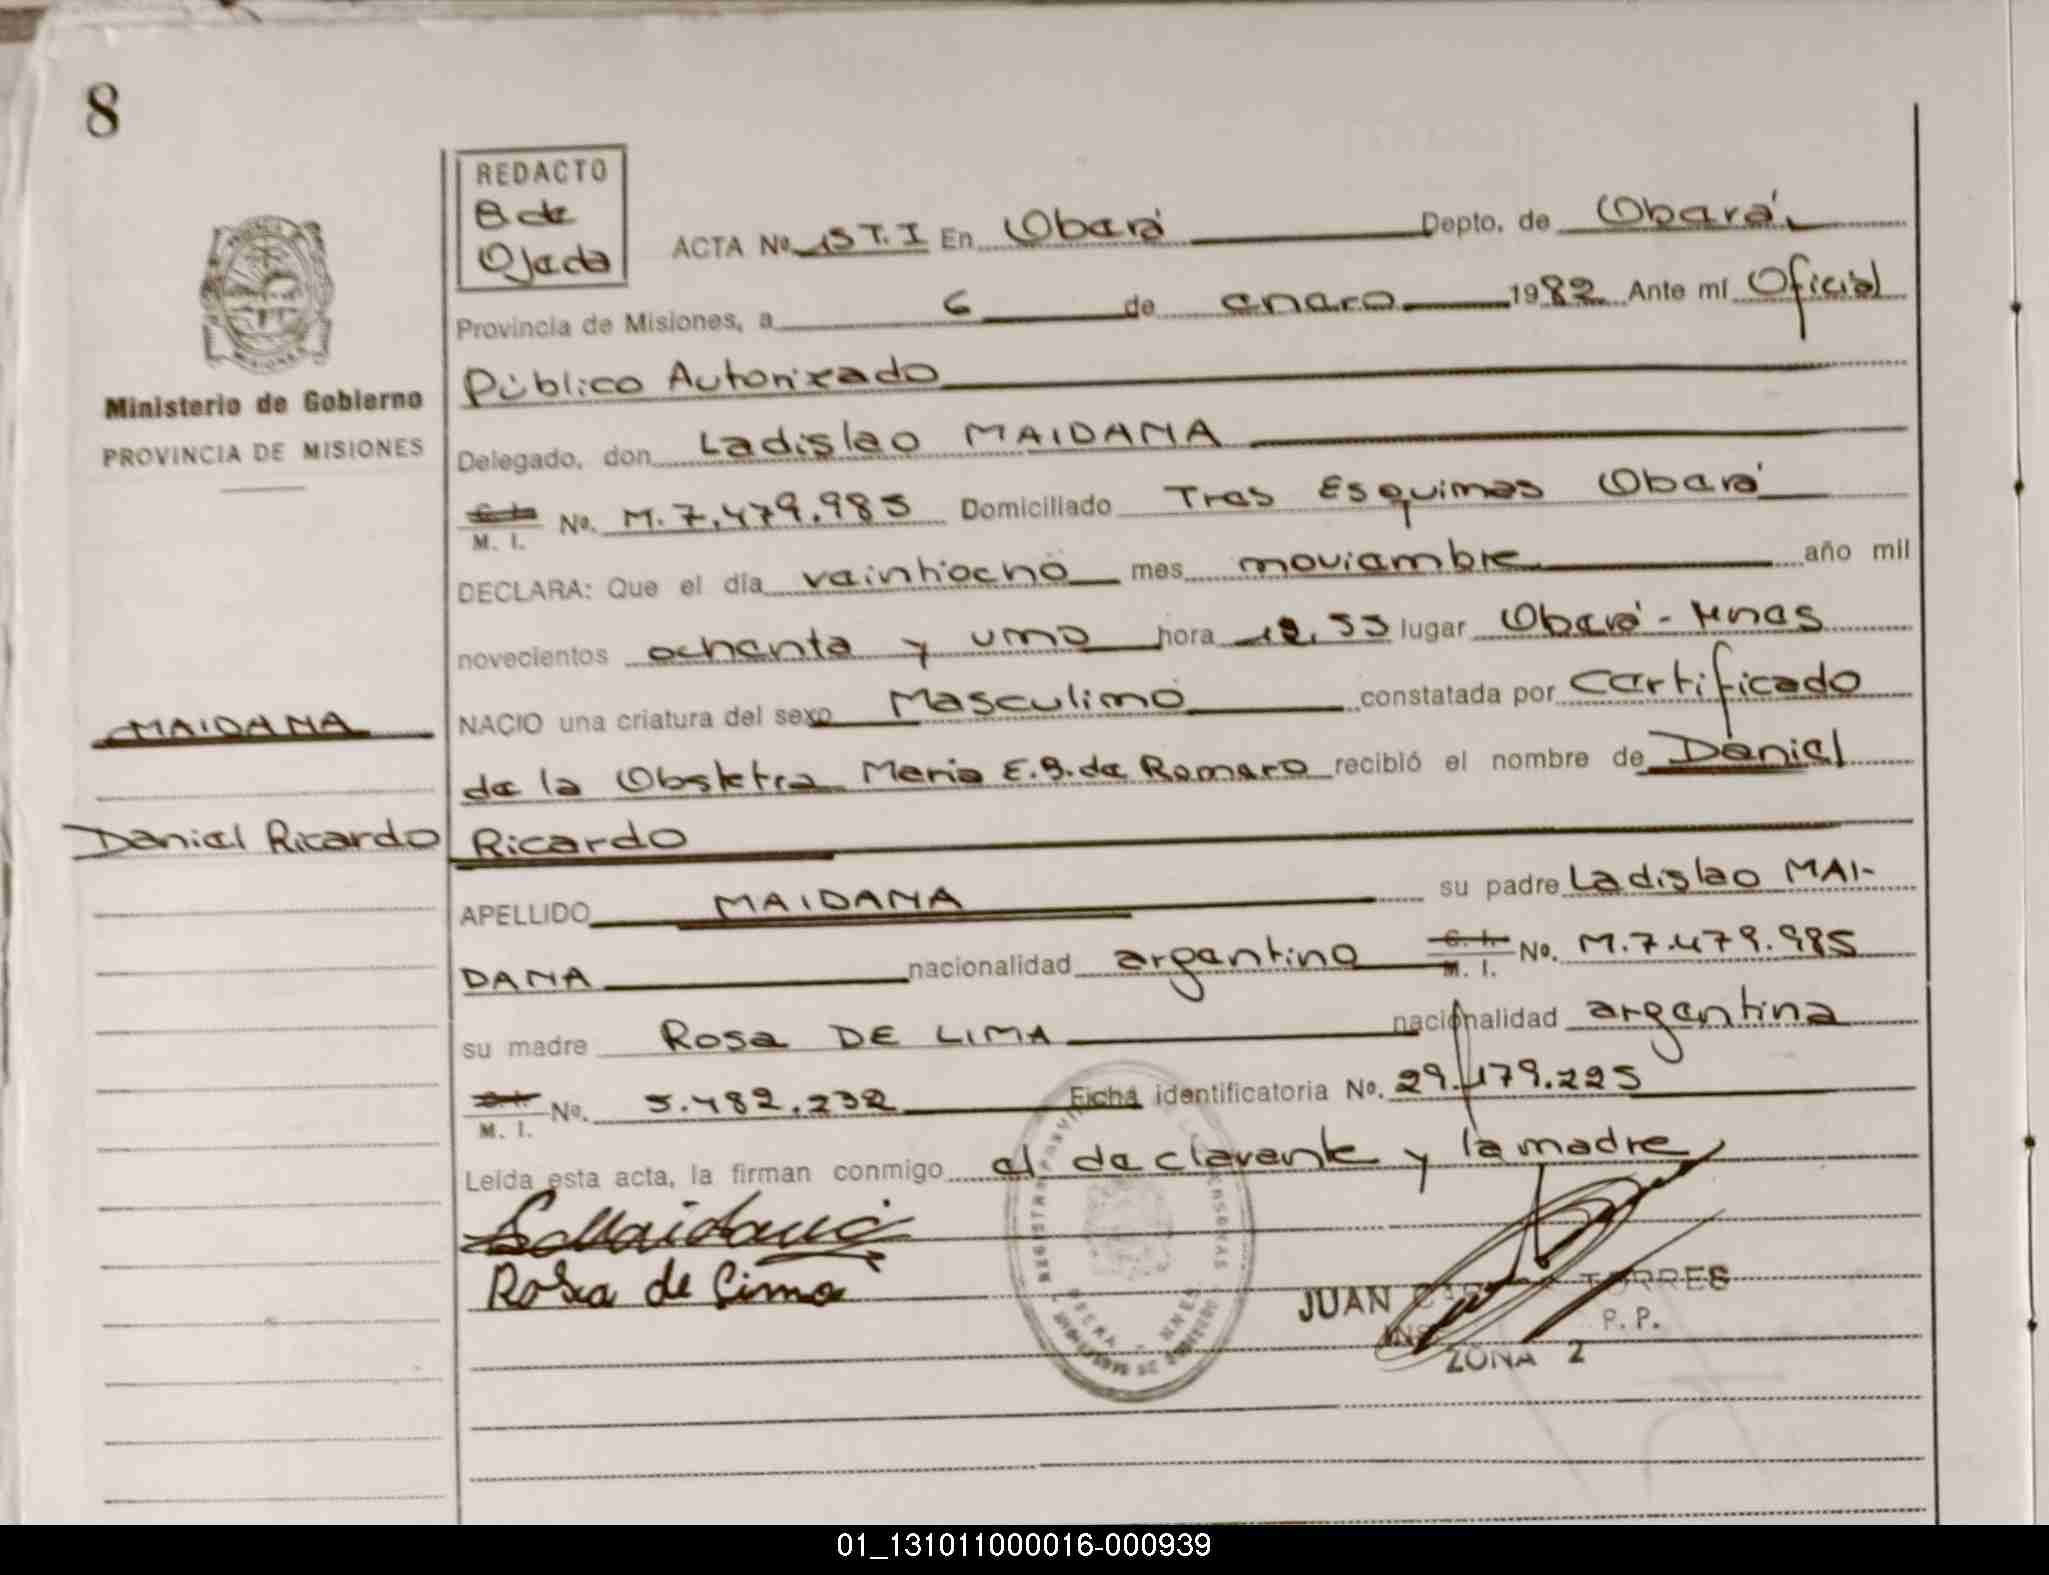 8
REDACTO
B de
Ojeda
ACTA Nº 15 T.I En Oberá Depto. de Oberá
Provincia de Misiones, a 6 de enero 1982 Ante mí Oficial
Público Autorizado
Ministerio de Gobierno
PROVINCIA DE MISIONES
Delegado, don Ladislao MAIDANA
M. I. No. M. 7.479.985 Domiciliado Tres Esquinas Oberá
DECLARA: Que el día veintiocho mes noviembre año mil
novecientos ochenta y uno hora 12,55 lugar Oberá - Mnes
MAIDANA
NACIO una criatura del sexo Masculino constatada por Certificado
de la Obstetra Maria E. G. de Romero recibió el nombre de Daniel
Daniel Ricardo
Ricardo
APELLIDO MAIDANA su padre Ladislao MAI-
DANA nacionalidad argentino C. I. M. I. No. M.7.479.985
su madre Rosa DE LIMA nacionalidad argentina
M. I. No. 5.482.232 Ficha identificatoria No. 29.179.225
Leída esta acta, la firman conmigo el declarante y la madre
Maidana
Rosa de Lima
JUAN TORRES
P. P.
ZONA 2
01_131011000016-000939